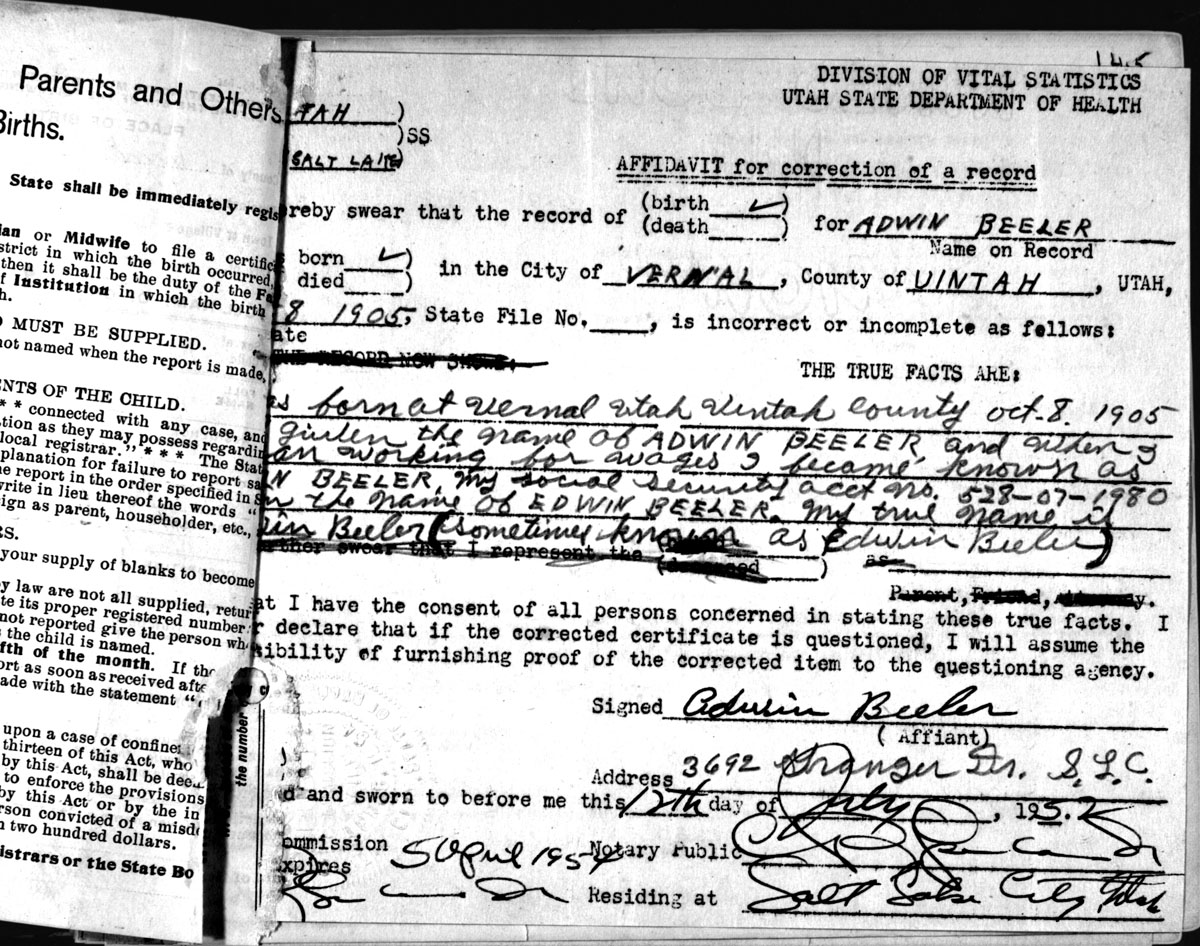 Parents and Others
Births.
State shall be immediately regis
ian or Midwife to file a certific
strict in which the birth occurred,
then it shall be the duty of the Fa
f Institution in which the birth
h.
O MUST BE SUPPLIED.
not named when the report is made,
ENTS OF THE CHILD.
* * connected with any case, and
tion as they may possess regardin
local registrar." * * * The Stat
planation for failure to report sa
he report in the order specified in s
write in lieu thereof the words "
sign as parent, householder, etc.,
RS.
your supply of blanks to become
y law are not all supplied, retur
te its proper registered number
not reported give the person wh
s the child is named.
fth of the month. If the
ort as soon as received afte
ade with the statement "
upon a case of confine
thirteen of this Act, who
by this Act, shall be dee
to enforce the provisions
by this Act or by the in
rson convicted of a misde
n two hundred dollars.
istrars or the State Bo
the number
145
DIVISION OF VITAL STATISTICS
UTAH STATE DEPARTMENT OF HEALTH
TAH )
)SS
SALT LAKE)
AFFIDAVIT for correction of a record
reby swear that the record of (birth ✓ )
(death ) for ADWIN BEELER
Name on Record
born ✓ ) in the City of VERNAL, County of UINTAH, UTAH,
died )
8 1905, State File No. , is incorrect or incomplete as follows:
ate
THE RECORD NOW SHOWS:
THE TRUE FACTS ARE:
s born at Vernal Utah Uintah County Oct. 8. 1905
given the name of ADWIN BEELER, and when I
an working for wages I became known as
N BEELER, My social security acct no. 528-07-1980
in the name of EDWIN BEELER. My true name is
in Beeler (sometimes known as Edwin Beeler)
rther swear that I represent the
(deceased ) as
Parent, Friend, Attorney.
at I have the consent of all persons concerned in stating these true facts. I
r declare that if the corrected certificate is questioned, I will assume the
sibility of furnishing proof of the corrected item to the questioning agency.
Signed Adwin Beeler
(Affiant)
Address 3692 Granger Dr. S.L.C.
d and sworn to before me this 12th day of July, 195
ommission
xpires 5 April 1954 Notary Public
Residing at Salt Lake City Utah